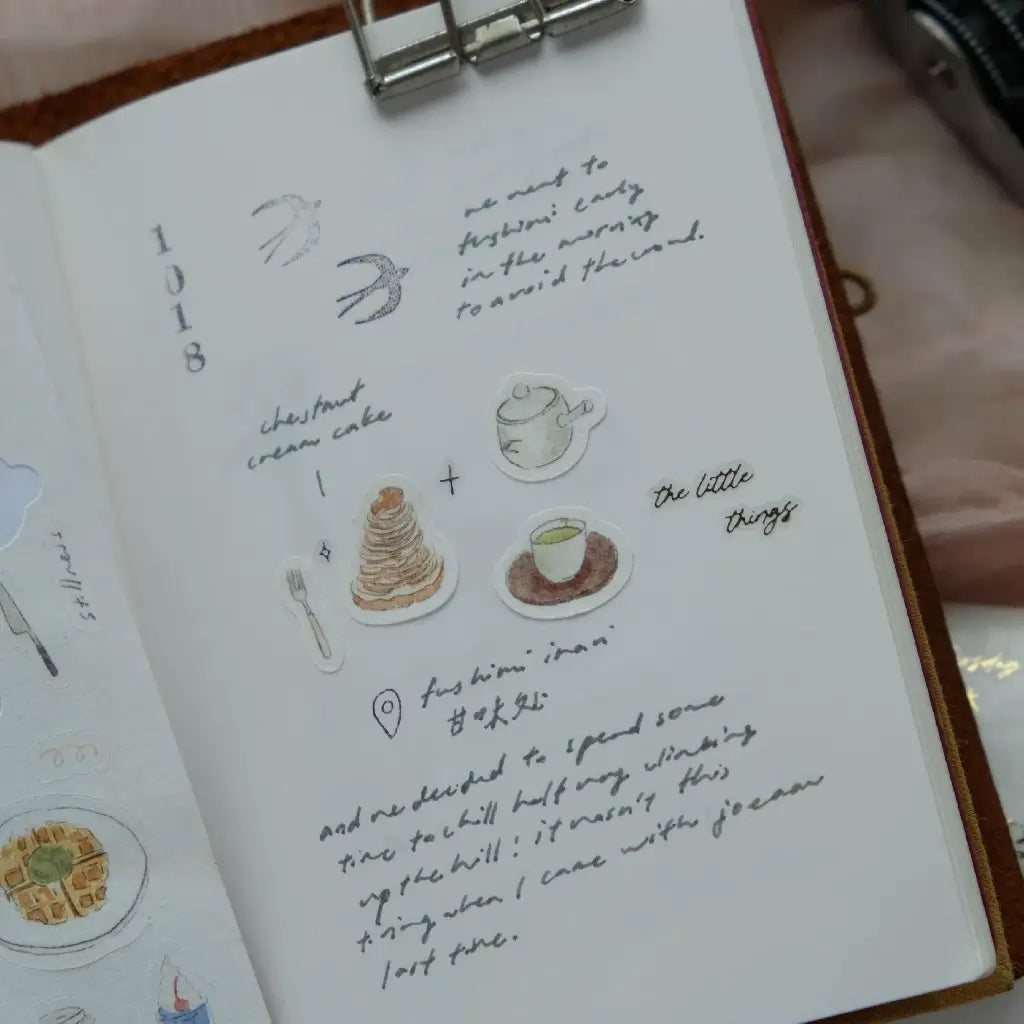 1
0
1
8
we went to
fushimi early
in the morning
to avoid the crowd.
chestnut
cream cake
+
the little
things
fushimi inari
甘味処
and we decided to spend some
time to chill half way climbing
up the hill! it wasn't this
tiring when I came with joeann
last time.